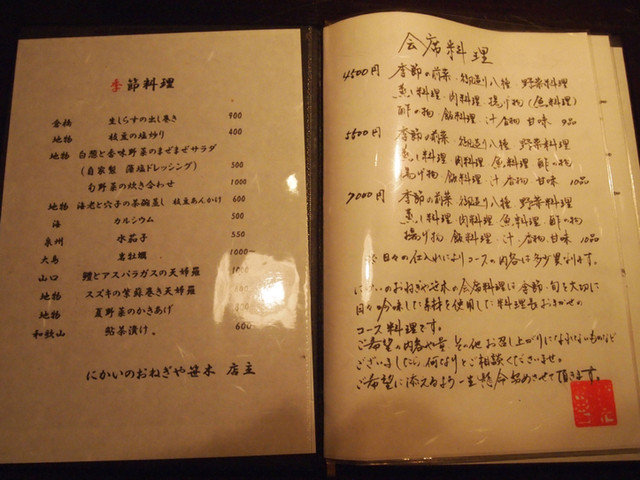 季節料理
倉橋 生しらすの出し巻き 900
地物 枝豆の塩炒り 400
地物 白葱と香味野菜のまぜまぜサラダ
(自家製 藻塩ドレッシング) 500
旬野菜の炊き合わせ 1000
地物 海老と穴子の茶碗蒸し 枝豆あんかけ 600
海 カルシウム 500
泉州 水茄子 550
大島 岩牡蠣 1000~
山口 鱧とアスパラガスの天婦羅
地物 スズキの紫蘇巻き天婦羅
地物 夏野菜のかきあげ
和歌山 鮎茶漬け。 600
にかいのおねぎや笹木 店主
会席料理
4500円 季節の前菜・御造り八種 野菜料理
蒸し料理・肉料理・揚げ物(魚料理)
酢の物 飯料理・汁 香物 甘味 9品
5500円 季節の前菜・御造り八種 野菜料理
蒸し料理 肉料理 魚料理 酢の物
揚げ物 飯料理・汁 香物 甘味 10品
7000円 季節の前菜 御造り八種 野菜料理
蒸し料理・肉料理・魚料理・酢の物
揚げ物 飯料理・汁・香物・甘味 10品
※日々の仕入れによりコースの内容に多少異なります。
にかいのおねぎや笹木の会席料理は季節・旬を大切に
日々吟味した素材を使用した料理をおまかせの
コース料理です。
ご希望の内容や量 その他お召し上がりになれないものなど
ございましたら何なりとご相談くださいませ。
ご希望に添えるよう一生懸命努めさせて頂きます。